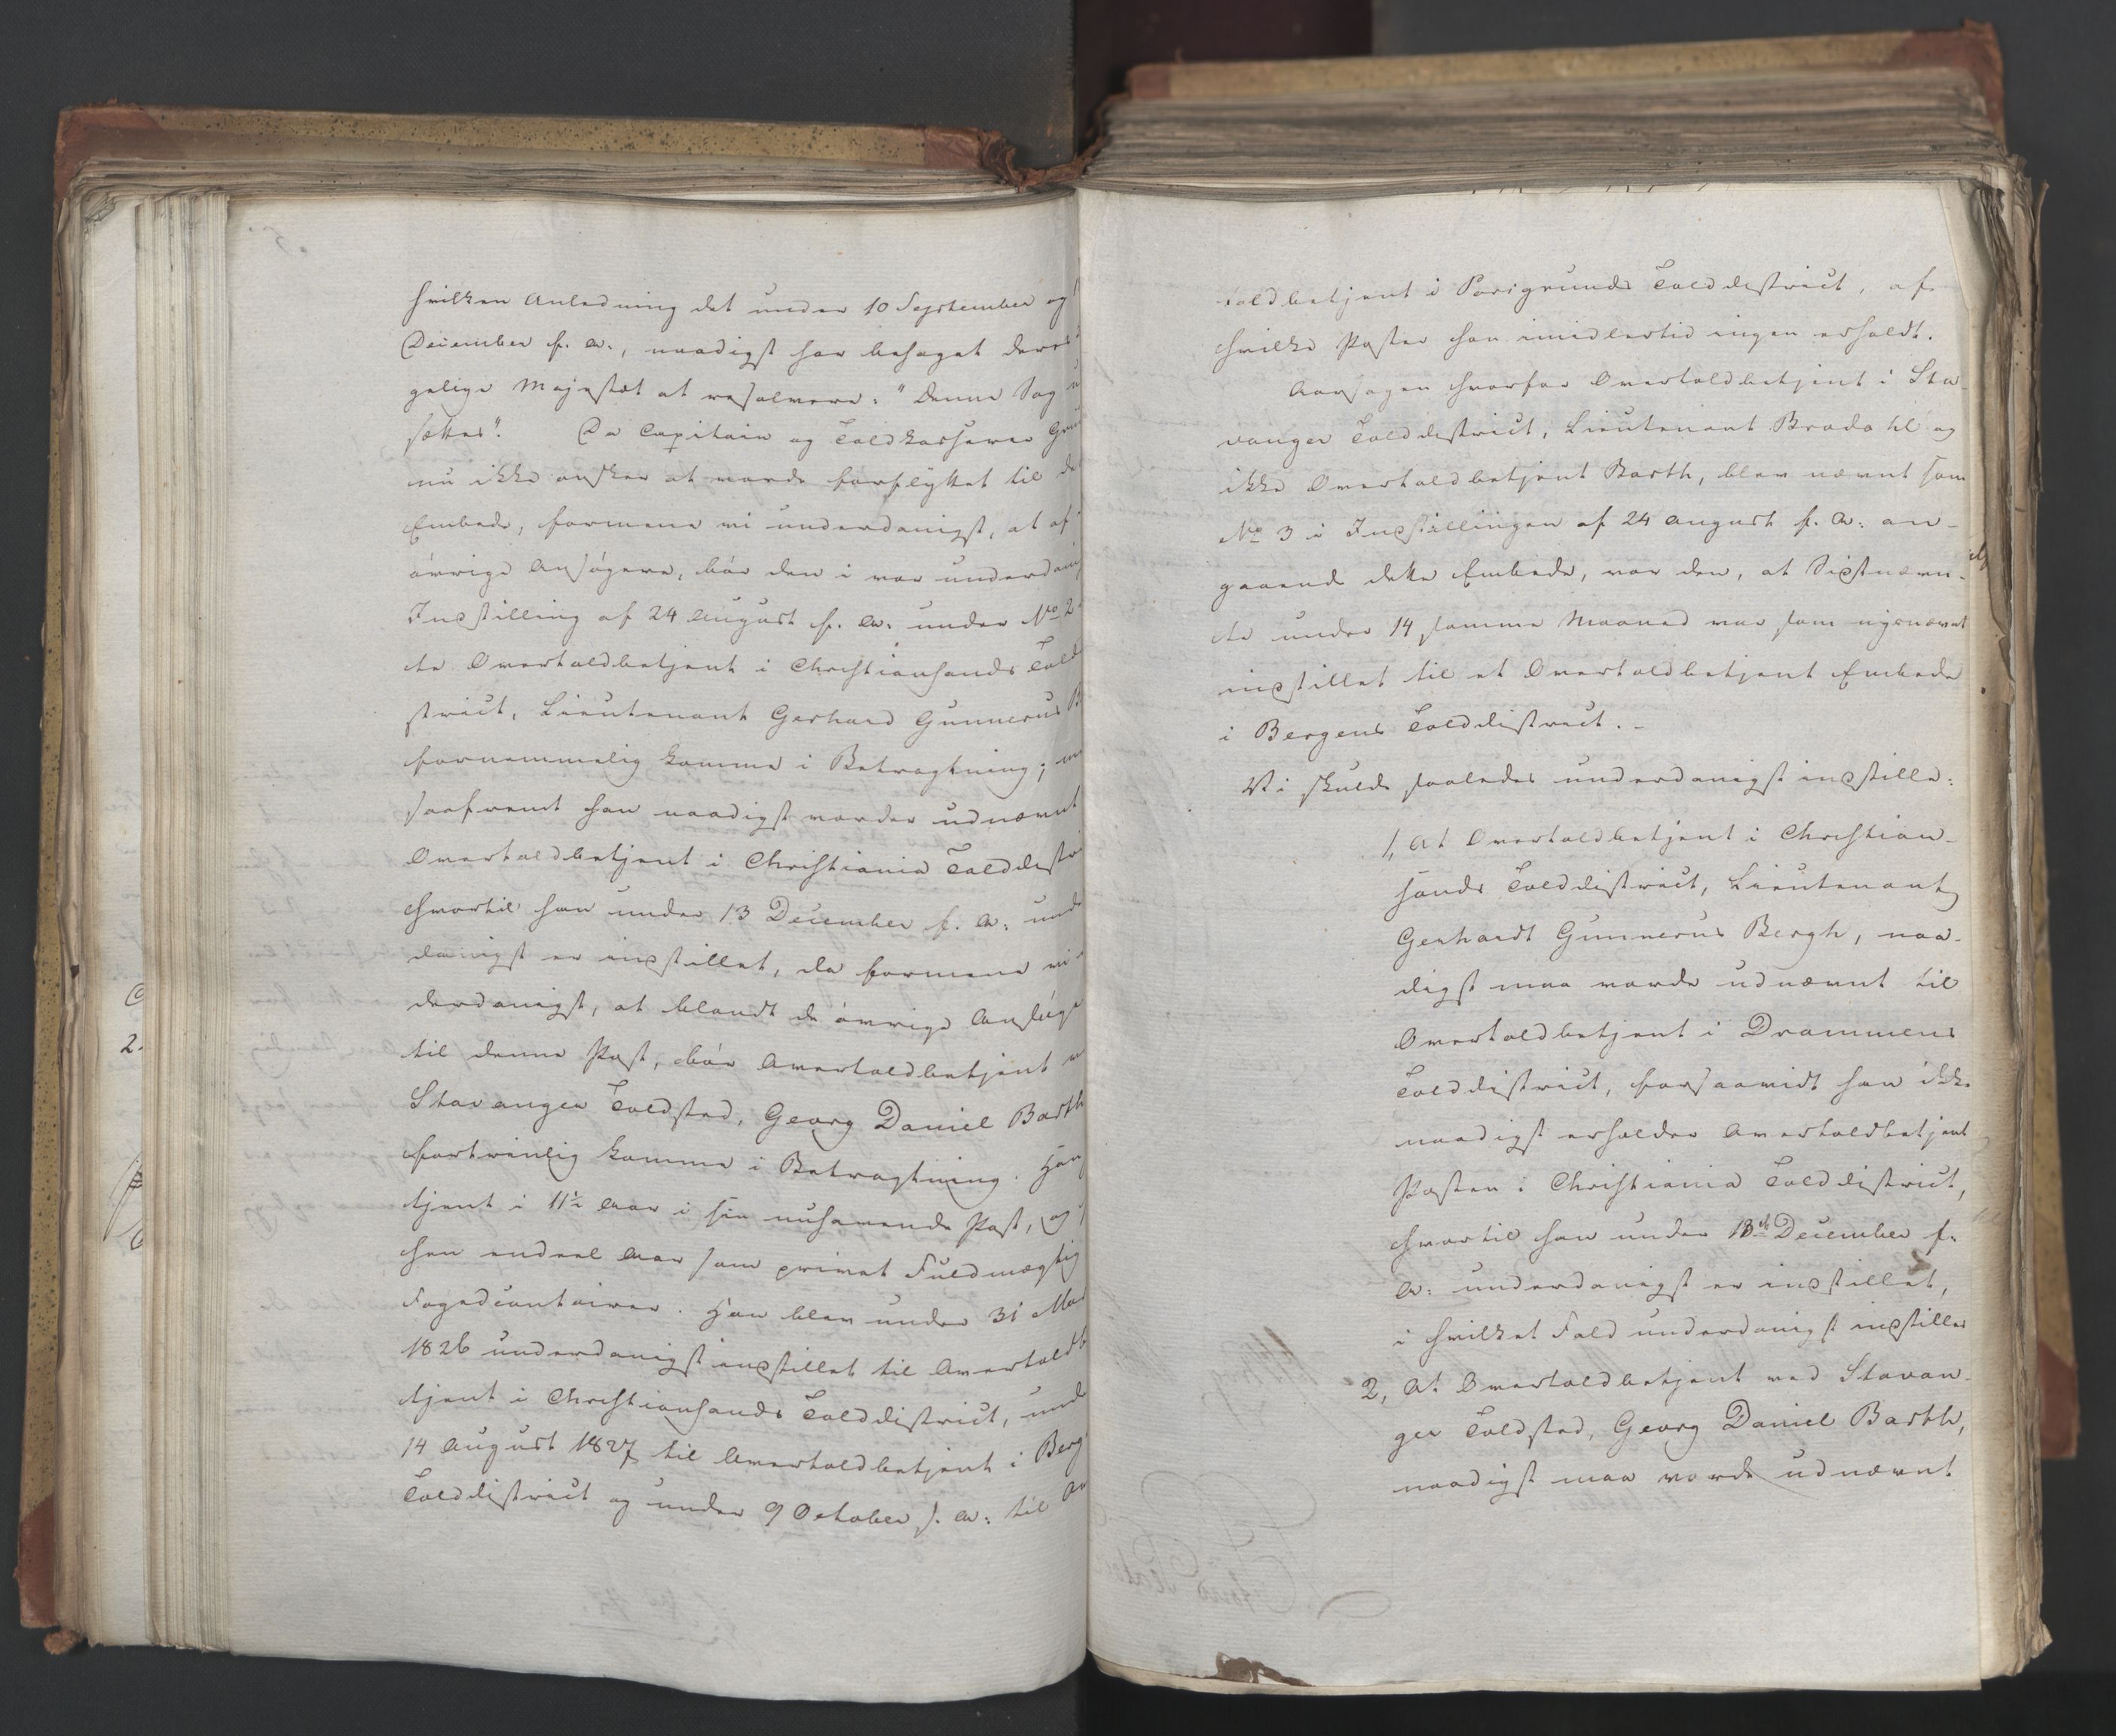 hvilken Anledning det under 10 September og
December f. A., naadigst har behaget Deres
gelige Majestæt at resolvere: "Denne Sag
sættes". Da Capitain og Toldkasserer
nu ikke ønsker at vorde forflyttet til
Embede, formene vi underdanigst, at af
øvrige Ansøgere, bør den i vor underdanig
Indstilling af 24 August f. A. under No 2
te Overtoldbetjent i Christiansands Toldd
strict, Lieutenant Gerhard Gunnerus B
fornemmelig komme i Betragtning; m
saafremt han naadigst vorder udnævnt
Overtoldbetjent i Christiania Tolddistri
hvortil han under 13 December f. A. unde
danigst er indstillet, da formene vi
derdanigst, at blandt de øvrige Ansøge
til denne Post, bør Overtoldbetjent v
Stavanger Toldsted, Georg Daniel Barth
fortrinlig komme i Betragtning. Han
tjent i 11½ Aar i sin nuhavende Post, og
hen endeel Aar som privat Fuldmægtig
Fogedcontoirer. Han blev under 31 Mar
1826 underdanigst indstillet til Overtoldb
tjent i Christiansands Tolddistrict, unde
14 August 1827 til Overtoldbetjent i Berg
Tolddistrict og under 9 October s. A. til Ov
toldbetjent i Porsgrunds Tolddistrict, af
hvilke Poster han imidlertid ingen erholdt.
Aarsagen hvorfor Overtoldbetjent i Sta-
vanger Tolddistrict, Lieutenant Brodahl og
ikke Overtoldbetjent Barth, blev nævnt som
No 3 i Indstillingen af 24 August f. A. an-
gaaende dette Embede, var den, at Sidstnævn-
te under 14 samme Maaned var som nysnævnt
indstillet til et Overtoldbetjent Embede
i Bergens Tolddistrict. -
Vi skulde saaledes underdanigst indstille:
1, At Overtoldbetjent i Christian-
sands Tolddistrict, Lieutenant
Gerhardt Gunnerus Bergh, naa-
digst maa vorde udnævnt til
Overtoldbetjent i Drammens
Tolddistrict, forsaavidt han ikke
naadigst erholder Overtoldbetjent
Posten i Christiania Tolddistrict,
hvortil han under 13de December f.
A. underdanigst er indstillet,
i hvilket Fald underdanigst indstilles
2, At Overtoldbetjent ved Stavan-
ger Toldsted, Georg Daniel Barth,
naadigst maa vorde udnævnt